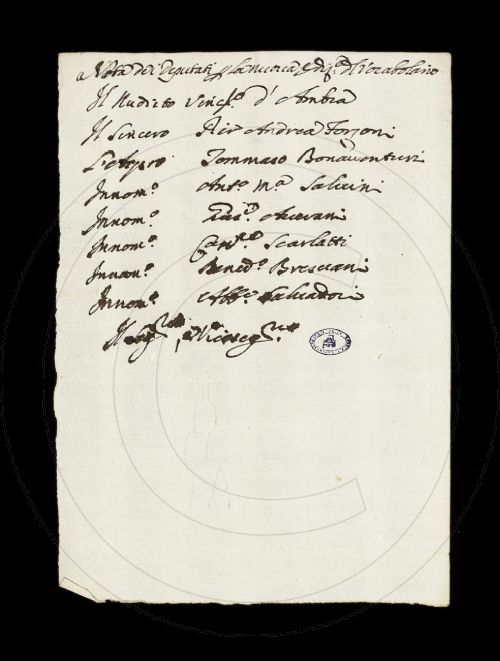 Nota dei Deputati p la nuova ediz.e del Vocabolario
Il Nudrito Vinc.o d'Ambra
Il Sincero Pier Andrea Forzoni
L'Aspro Tommaso Bonaventuri
Innom.o Ant.o M.a Salvini
Innom.o Averani
Innom.o Can.co Scarlatti
Innom.o Bened.o Bresciani
Innom.o Abb.e Salvadori
Il Seg.rio, Viceseg.rio